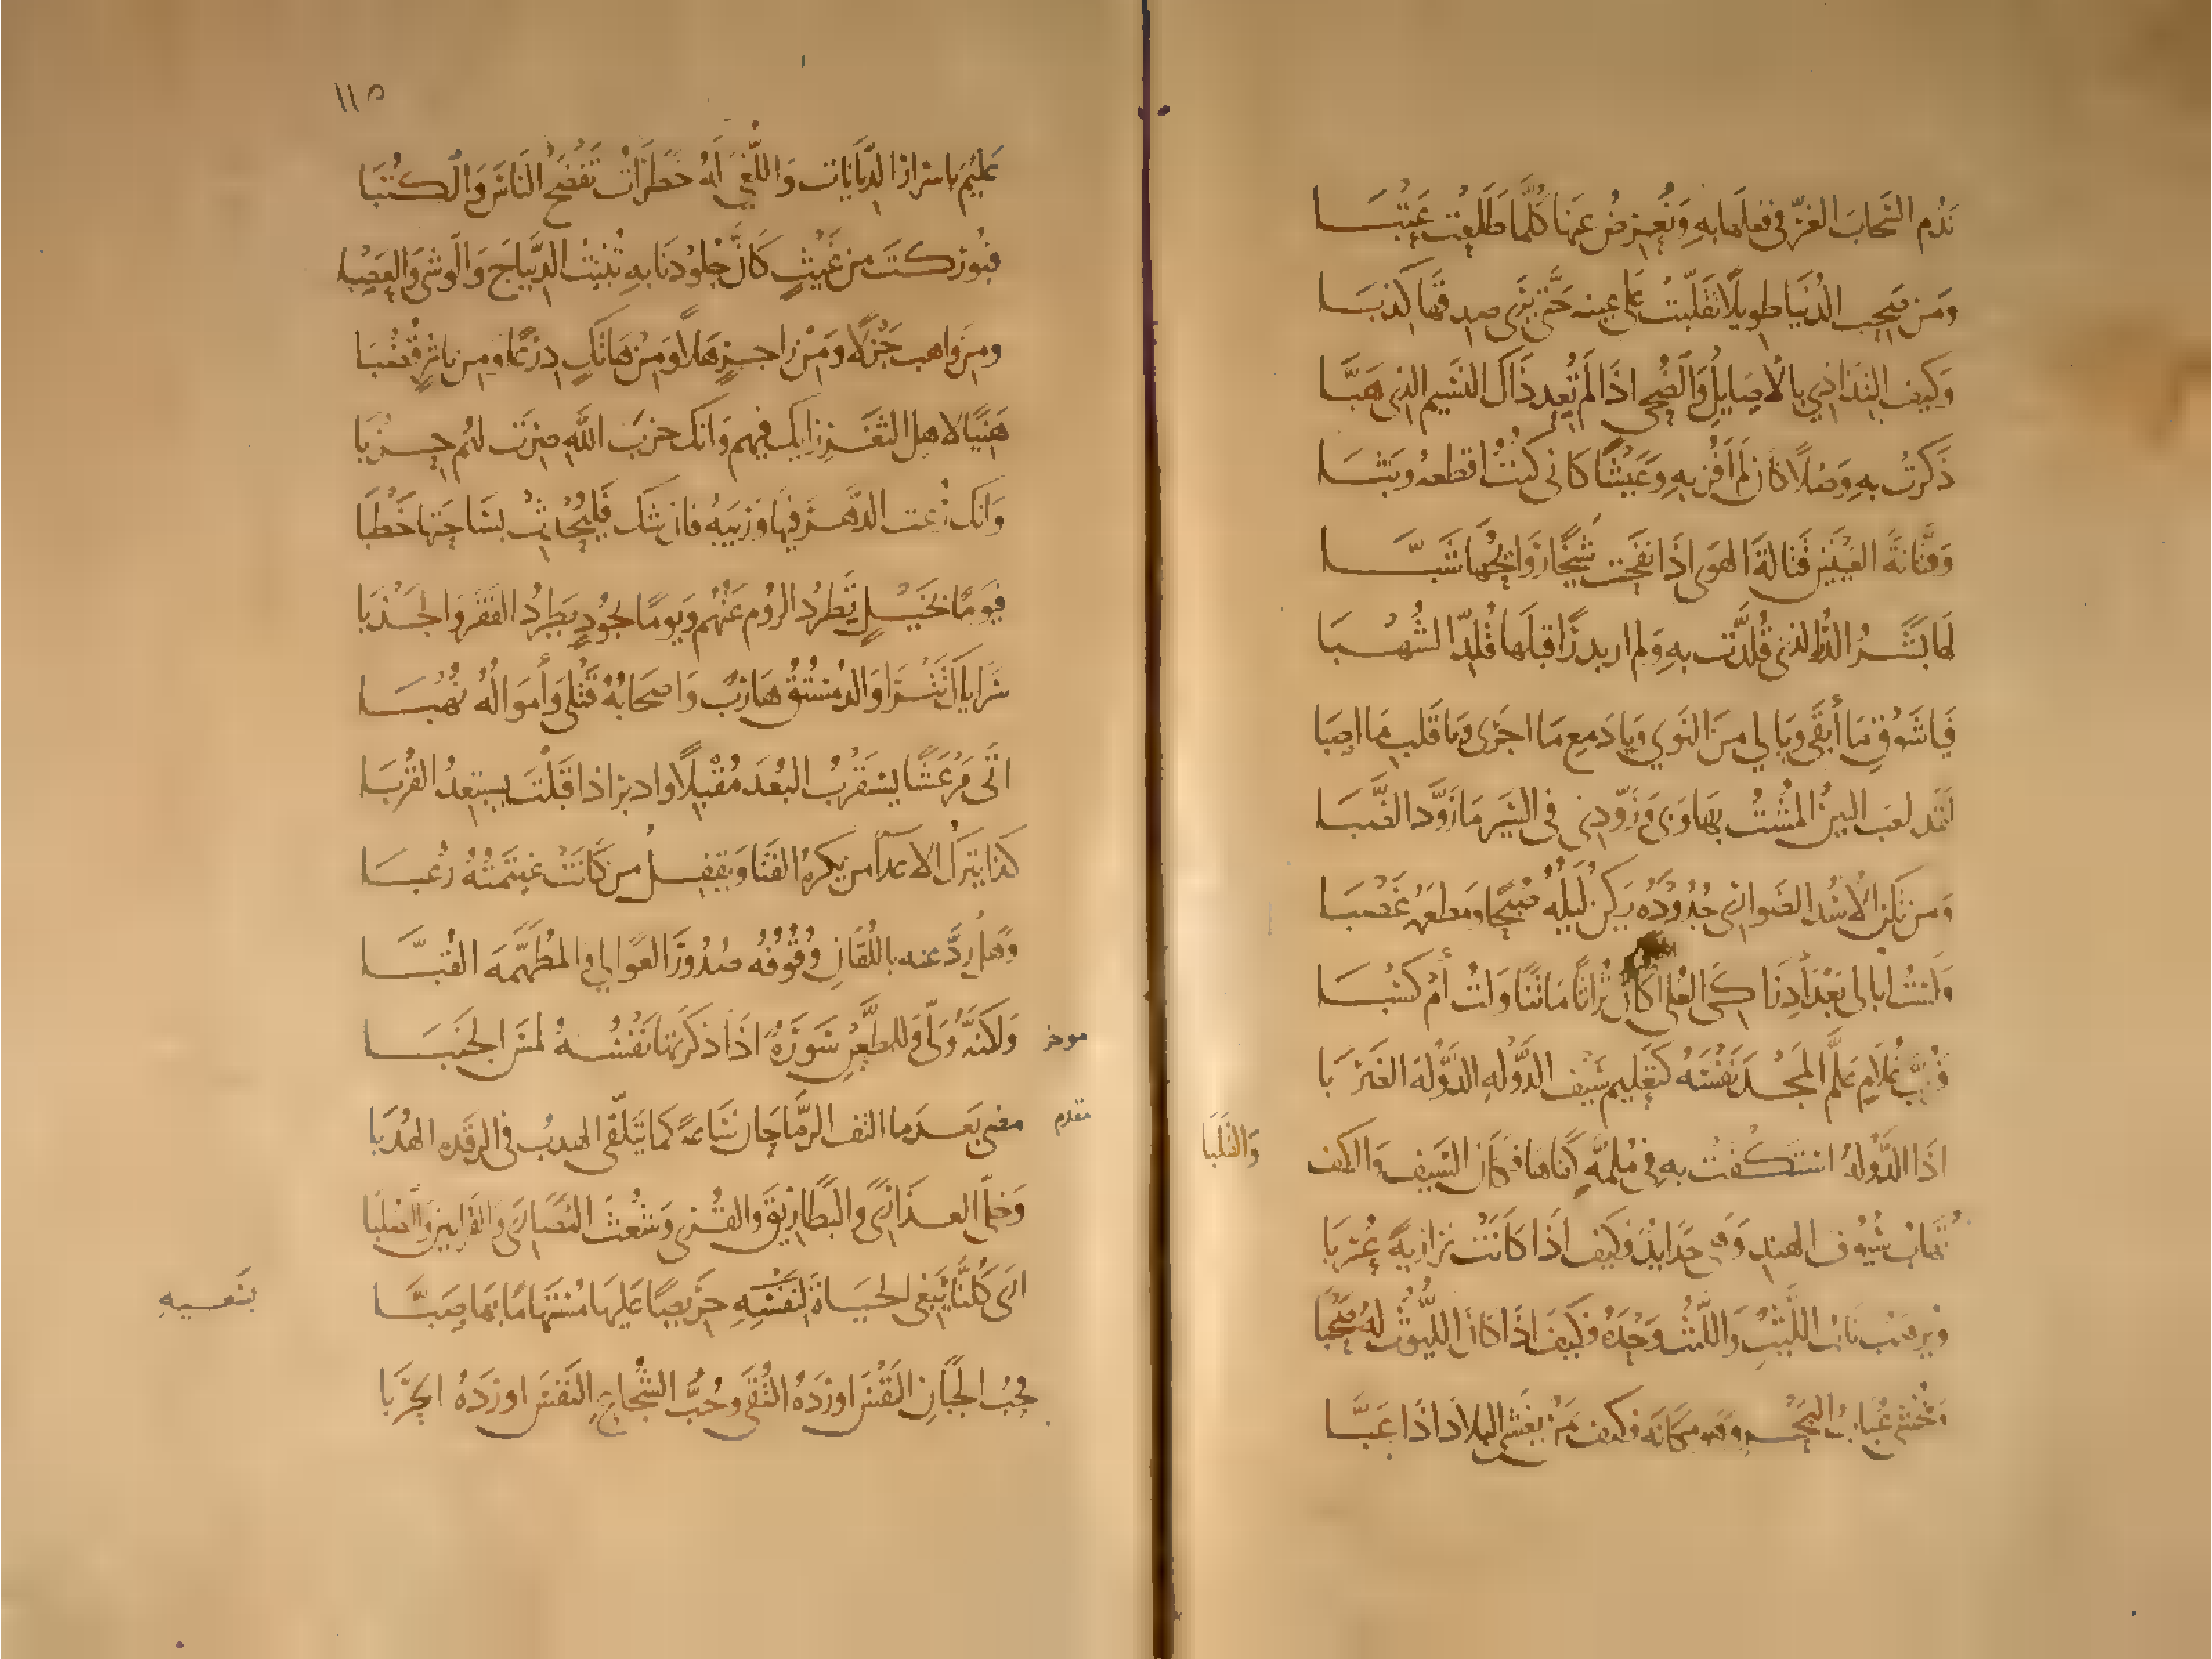 نذم السحاب الغر في فعلها به ونعرض عنها كلما طلعت عتبا
ومن صحب الدنيا طويلا تقلبت على عينه حتى يرى صدقها كذبا
وكيف التذاذي بالأصايل والضحى اذا لم يعد ذاك النسيم الذي هبا
ذكرت به وصلا كان لم أفز به وعيشا كاني كنت اقطعه وثبا
وفتانة العينين قتالة الهوى اذا نفحت شيخا روائحها شبا
لها بشر الدر الذي قلدت به ولم ار بدرا قبلها قلد الشهبا
فيا شوق ما أبقى ويا لي من النوى ويا دمع ما اجرى ويا قلب ما اصبا
لقد لعب البين المشت بها وبي وزودني في السير ما زود الضبا
ومن تكن الأسد الضواري جدوده يكن ليله صبحا ومطعمه غصبا
ولست ابالي بعد ادراكي العلى اكان تراثا ما تناولت أم كسبا
فرب غلام علم المجد نفسه كتعليم سيف الدولة الدولة الضربا
اذا الدولة استكفت به في ملمة كفاها فكان السيف والكف
والقلبا
تهاب سيوف الهند وهي حدايد فكيف اذا كانت نزارية عربا
ويرهب ناب الليث والليث وحده فكيف اذا كان الليوث له صحبا
ويخشى عباب البحر وهو مكانه فكيف من يغشى البلاد اذا عبا
١١٥
عليم باسرار الديانات واللغى له خطرات تفضح الناس والكتبا
فبوركت من غيث كان جلودنا به تنبت الديباج والوشي والعصبا
ومن واهب جزلا ومن زاجر هلا ومن هاتك درعا ومن باتر قصبا
هنيا لاهل الثغر رايك فيهم وانك حزب الله صرت لهم حزبا
وانك رعت الدهر فيها وريبه فان شك فليحدث بساحتها خطبا
فيوما بخيل تطرد الروم عنهم ويوما بجود يطرد الفقر والجدبا
سراياك تترا والدمستق هارب واصحابه قتلى وأمواله نهبا
اتى مرعشا يستقرب البعد مقبلا وادبر اذ اقبلت يستبعد القربا
كذا يترك الاعدآ من يكره القنا ويقفل من كانت غنيمته رعبا
وهل رد عنه باللقان وقوفه صدور العوالي والمطهمة القبا
ولكنه ولى وللطعن سورة اذا ذكرتها نفسه لمس الجنبا
موخر
مضى بعد ما التف الرماحان ساعة كما يتلقى الهدب في الرقدة الهدبا
مقدم
وخلى العذارى والبطاريق والقرى وشعث النصارى والقرابين والصلبا
ارى كلنا يبغي الحياة لنفسه حريصا عليها مستهاما بها صبا
بنعسيه
فحب الجبان النفس اورده التقى وحب الشجاع النفس اورده الحربا